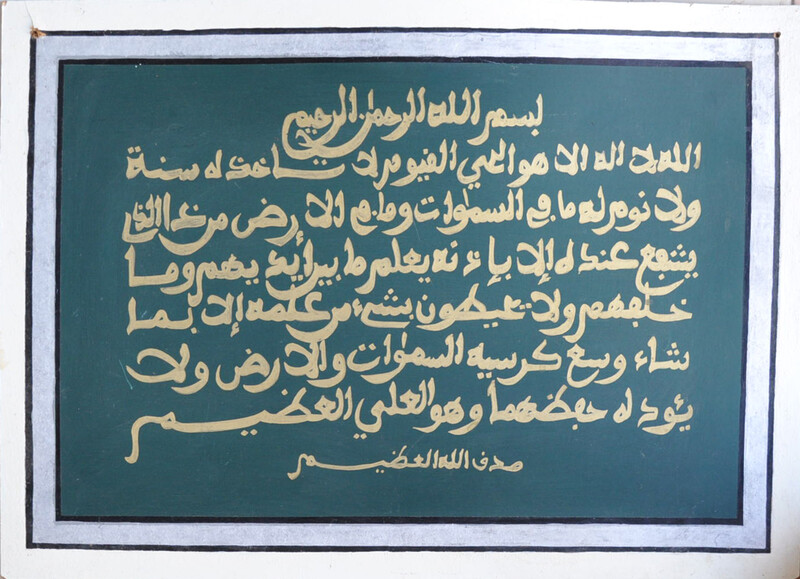 بسم الله الرحمن الرحيم
الله لا اله الا هو الحي القيوم لا تاخذه سنة
ولا نوم له ما في السمٰوات وما في الارض من ذا الذي
يشفع عنده إلا بإذنه يعلم ما بين أيديهم وما
خلفهم ولا يحيطون بشيء من علمه إلا بما
شاء وسع كرسيه السمٰوات والأرض ولا
يئوده حفظهما وهو العلي العظيم
صدق الله العظيم